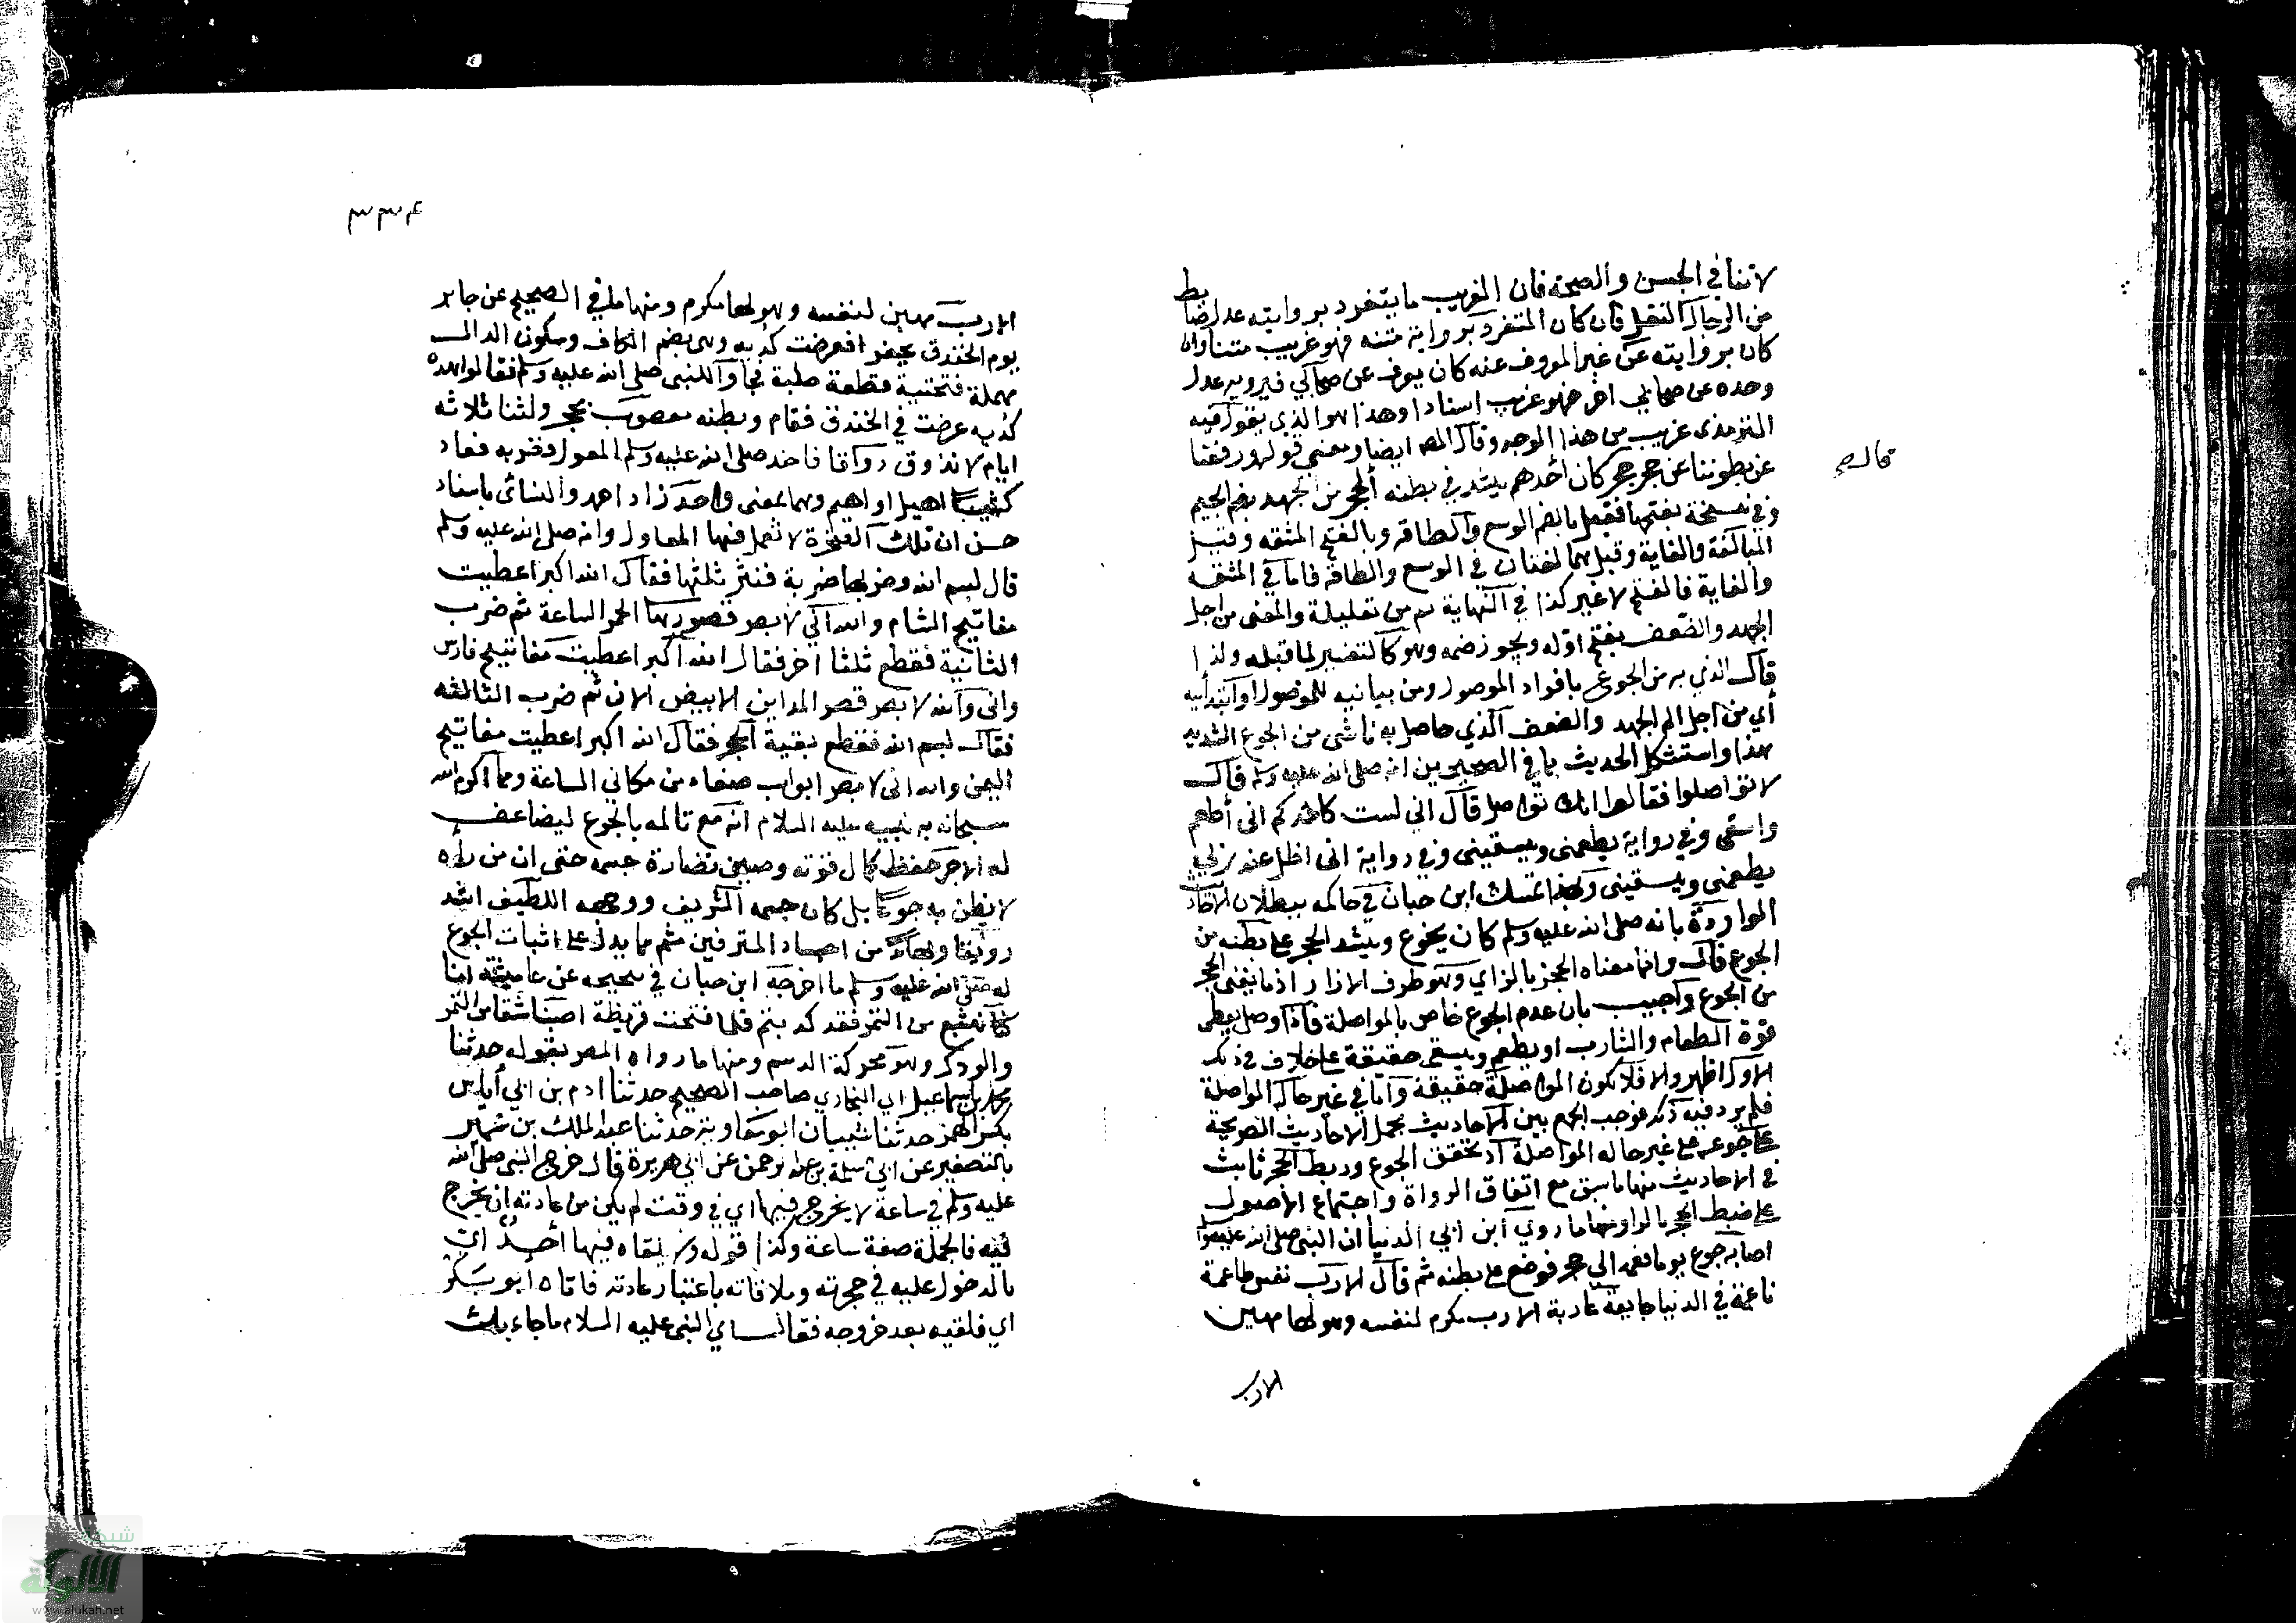 لا تنافي الحسن والصحة فان الغريب ما يتفرد بروايته عدل ضابط
من الرجال النقل فان كان المتفرد برواية متنه فهو غريب متنا وان
كان بروايته عن غير المعروف عنه كان يعرف عن صحابي فيرويه عدل
وحده عن صحابي اخر فهو غريب اسنادا وهذا هو الذي يقول فيه
الترمذي غريب من هذا الوجه وقال المص ايضا ومعني قوله ورفعنا
قال ص
عن بطوننا عن حجر حجر كان أحدهم يشد في بطنه الحجر من الجهد بضم الجيم
وفي نسخة بفتحها فقيل بالضم الوسع والطاقة وبالفتح المشقة وقيل
المبالغة والغاية وقيل هما لغتان في الوسع والطاقة فاما في المشقة
والغاية فالفتح لا غير كذا في النهاية ثم من تعليلة والمعنى من اجل
الجهد والضعف بفتح اوله ويجوز ضمه وهو كالتفسير لما قبله ولذا
قال الذي به من الجوع بافراد الموصول ومن بيانيه للموصول او ابتدائيه
أي من اجل الم الجهد والضعف الذي حاصل به ناشى من الجوع الشديد
هذا واستشكل الحديث بما في الصحيحين انه صلى الله عليه وسلم قال
لا تواصلوا فقالوا انك تواصل قال اني لست كاحدكم انى أطعم
واسقى وفي رواية يطعمنى ويسقينى وفي رواية انى اظل عند ربي
يطعمنى ويسقينى وبهذا تمسك ابن حبان في حاكمه ببطلان الاحاديث
الواردة بانه صلى الله عليه وسلم كان يجوع ويشد الحجر على بطنه من
الجوع قال وانما معناه الحجز بالزاي وهو طرف الازار اذ ما يغنى الحجر
من الجوع وأجيب بان عدم الجوع خاص بالمواصلة فاذا وصل يعطى
قوة الطعام والشارب او يطعم ويسقى حقيقة على خلاف في ذلك
الاول اظهر والا فلا تكون المواصلة حقيقة وأما في غير حال المواصلة
فلم يرد فيه ذلك فوجب الجمع بين الاحاديث بحمل الاحاديث الصريحة
على جوعه على غير حاله المواصلة اذ تحقق الجوع وربط الحجر ثابت
في الاحاديث منها ما سبق مع اتفاق الرواة واجتماع الاصول
على ضبط الحجر بالرا ومنها ما روي ابن ابي الدنيا ان النبى صلى الله عليه وسلم
اصابه جوع يوما فعمد الى حجر فوضع على بطنه ثم قال الا رب نفس طاعمة
ناعمة في الدنيا جايعة عارية الا رب مكرم لنفسه وهو لها مهين
الا رب
٣٣٤
الا رب مهين لنفسه وهو لها مكرم ومنها ما في الصحيح عن جابر
يوم الخندق نحفر فعرضت كديه وهى بضم الكاف وسكون الدال
مهملة فتحتية قطعة صلبة فجاؤا للنبى صلى الله عليه وسلم فقالوا هذه
كديه عرضت في الخندق فقام وبطنه معصوب بحجر ولثنا ثلاثه
ايام لا نذوق ذواقا فاخذ صلى الله عليه وسلم المعول فضربه فعاد
كثيبا اهيل او اهيم وهما بمعنى واحد زاد احمد والنسائى باسناد
حسن ان تلك الصخرة لا تعمل فيها المعاول وانه صلى الله عليه وسلم
قال بسم الله وضربها ضربة فنثر ثلثها فقال الله اكبر اعطيت
مفاتيح الشام والله اني لا بصر قصورها الحمر الساعة ثم ضرب
الثانية فقطع ثلثا اخر فقال الله اكبر اعطيت مفاتيح فارس
وانى والله لا بصر قصر المداين الابيض الان ثم ضرب الثالثه
فقال بسم الله فقطع بقية الحجر فقال الله اكبر اعطيت مفاتيح
اليمن والله انى لا بصر ابواب صنعاء من مكاني الساعة ومما اكرم الله
سبحانه به نبيه عليه السلام انه مع تالمه بالجوع ليضاعف
له الاجر حفظ كمال قوته وصين نضارة جسمه حتى ان من رأه
لا يظن به جوعا بل كان جسمه الشريف ووجهه اللطيف اشد
رونقا وبهاء من اجساد المترفين ثم مما يدل على اثبات الجوع
له صلى الله عليه وسلم ما اخرجه ابن حبان في صحيحه عن عايشة انا
كنا نشبع من التمر فقد كذبتم فلما فتحت قريظة اصبنا شيئا من التمر
والودك وهو محركة الدسم ومنها ما رواه المص بقوله حدثنا
محمد بن اسماعيل اي البخاري صاحب الصحيح حدثنا ادم بن ابي أياس
بكسر الهمز حدثنا شيبان ابو معاوية حدثنا عبد الملك بن عمير
بالتصغير عن ابي سلمة بن عبد الرحمن عن ابي هريرة قال خرج النبى صلى الله
عليه وسلم في ساعة لا يخرج فيها اي في وقت لم يكن من عادته ان يخرج
فيه فالجملة صفة ساعة وكذا قوله ولا يلقاه فيها أحد اي
بالدخول عليه في حجرته وملاقاته باعتبار عادته فاتاه ابو بكر
اي فلقيه بعد خروجه فقال اي النبى عليه السلام ما جاء بك
شبكة
الألوكة
www.alukah.net